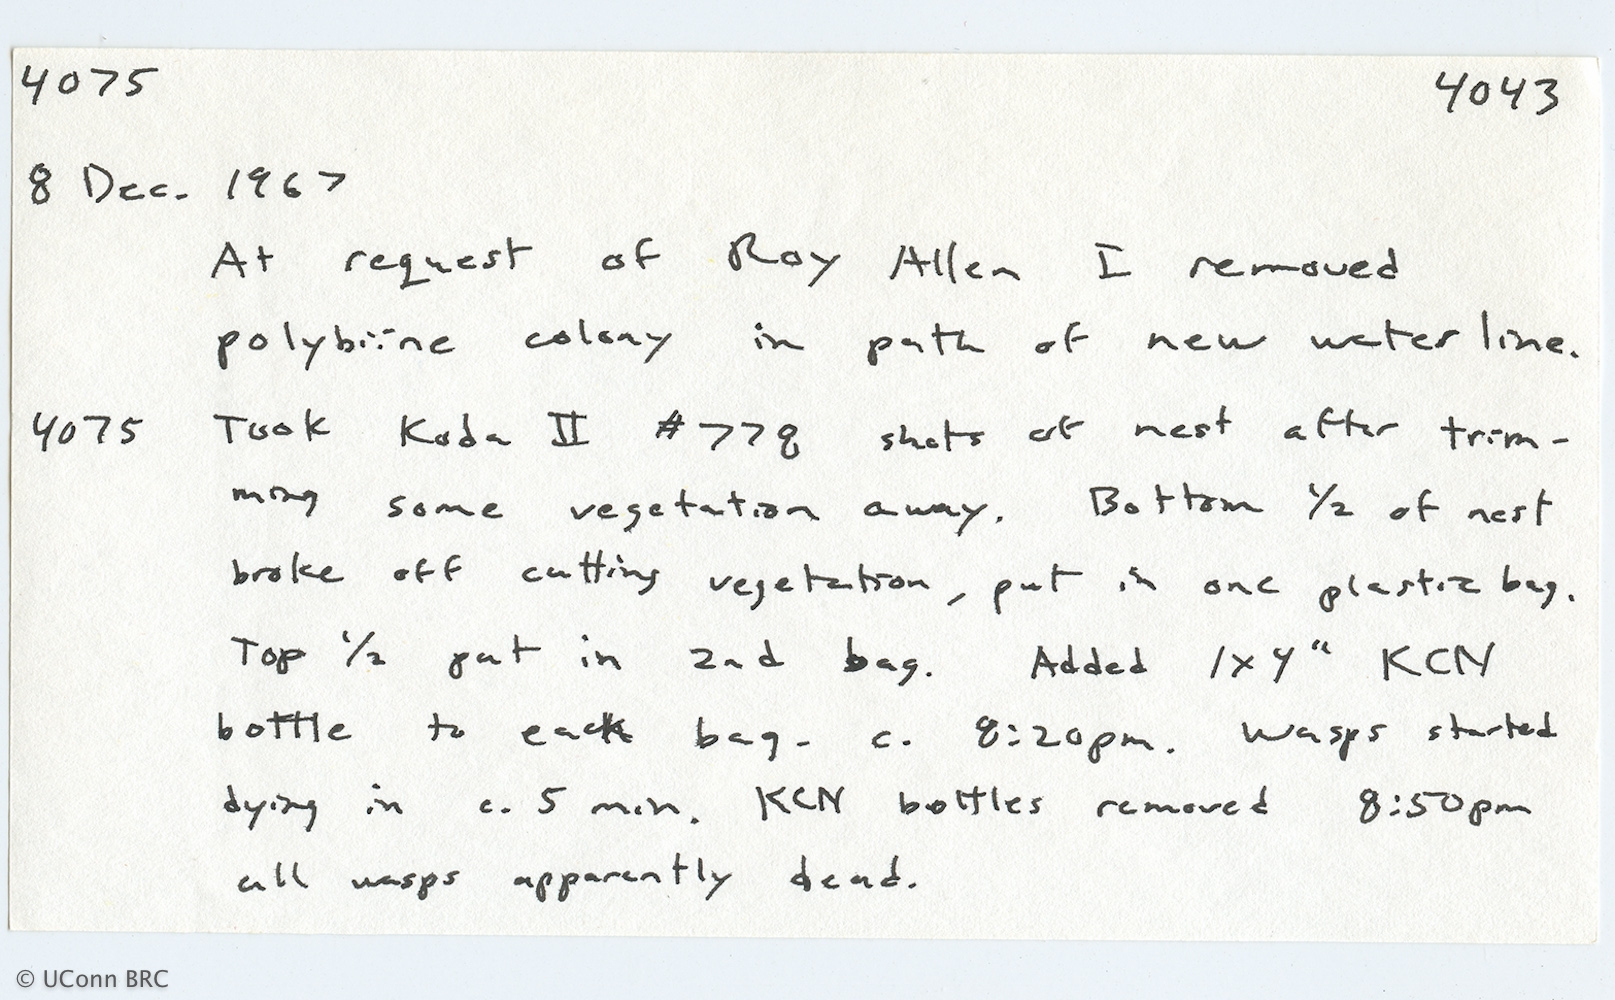 4075 4043
8 Dec. 1967
At request of Roy Allen I removed
polybiine colony in path of new water line.
4075 Took Koda II #778 shots of nest after trim-
ming some vegetation away. Bottom 1/2 of nest
broke off cutting vegetation, put in one plastic bag.
Top 1/2 put in 2nd bag. Added 1x4" KCN
bottle to each bag. c. 8:20pm. Wasps started
dying in c. 5 min. KCN bottles removed 8:50pm
all wasps apparently dead.
© UConn BRC